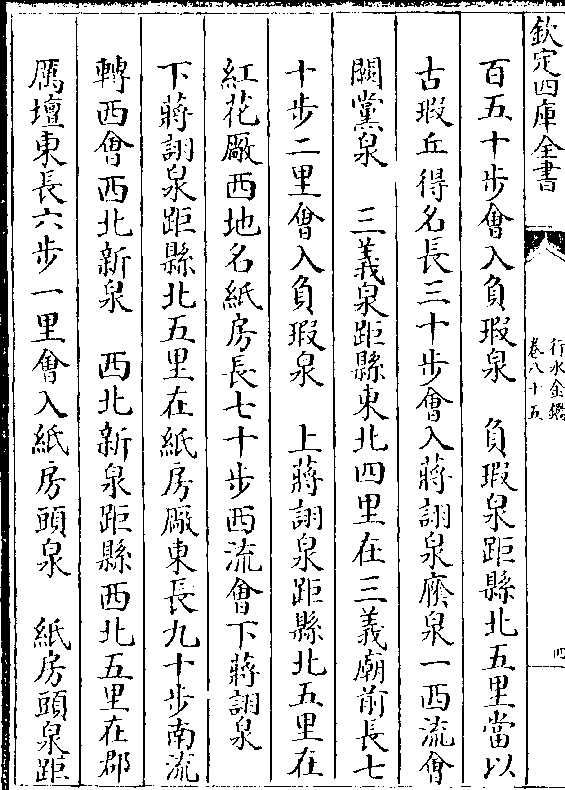 欽定四庫全書
行水金鑑
卷八十五
四
百五十步會入負瑕泉　負瑕泉距縣北五里當以
古瑕丘得名長三十步會入蔣詡泉廢泉一西流會
闕黨泉　三義泉距縣東北四里在三義廟前長七
十步二里會入負瑕泉　上蔣詡泉距縣北五里在
紅花廠西地名紙房長七十步西流會下蔣詡泉
下蔣詡泉距縣北五里在紙房廠東長九十步南流
轉西會西北新泉　西北新泉距縣西北五里在郡
厲壇東長六步一里會入紙房頭泉　紙房頭泉距